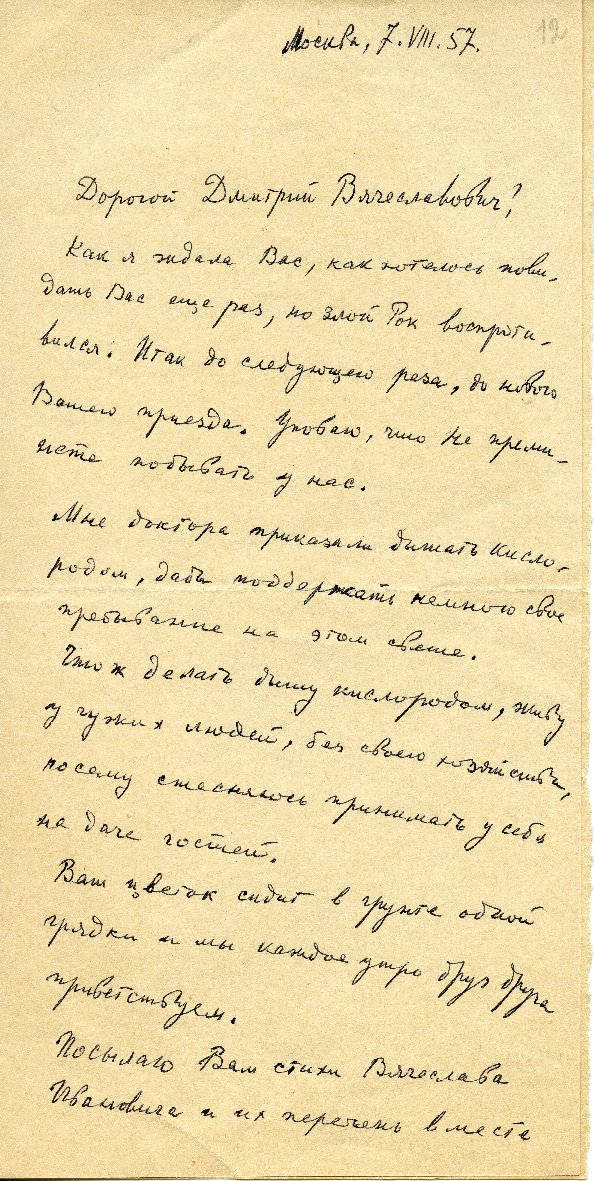 12
Москва, 7.VIII.57.
Дорогой Дмитрий Вячеславович!
Как я ждала Вас, как хотелось пови-
дать Вас еще раз, но злой Рок воспроти-
вился. Итак до следующего раза, до нового
Вашего приезда. Уповаю, что не преми-
нете побывать у нас.
Мне доктора приказали дышать кисло-
родом, дабы поддержать немного свое
пребывание на этом свете.
Что ж делать дышу кислородом, живу
у чужих людей, без своего хозяйства,
посему стесняюсь принимать у себя
на даче гостей.
Ваш цветок сидит в грунте одной
грядки и мы каждое утро друг друга
приветствуем.
Посылаю Вам стихи Вячеслава
Ивановича и их перечень вместе